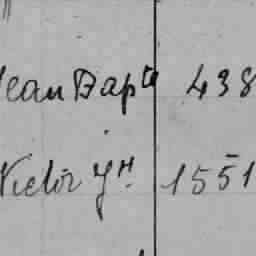 Jean Bapte 438
Victor Jh. 1551